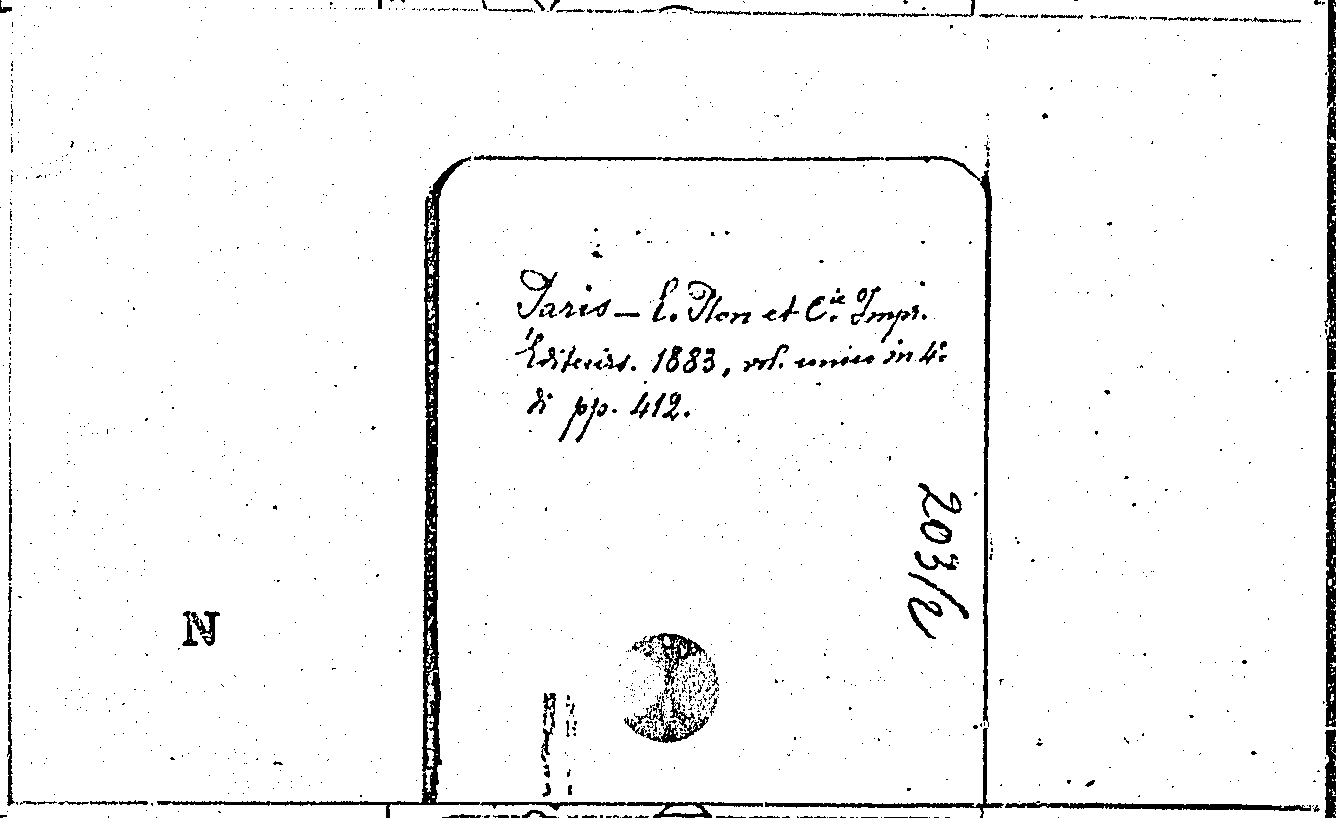 Paris — E. Plon et C.ie Impr.
Éditeurs. 1883, vol. unico in 4°.
di pp. 412.
203/2
N